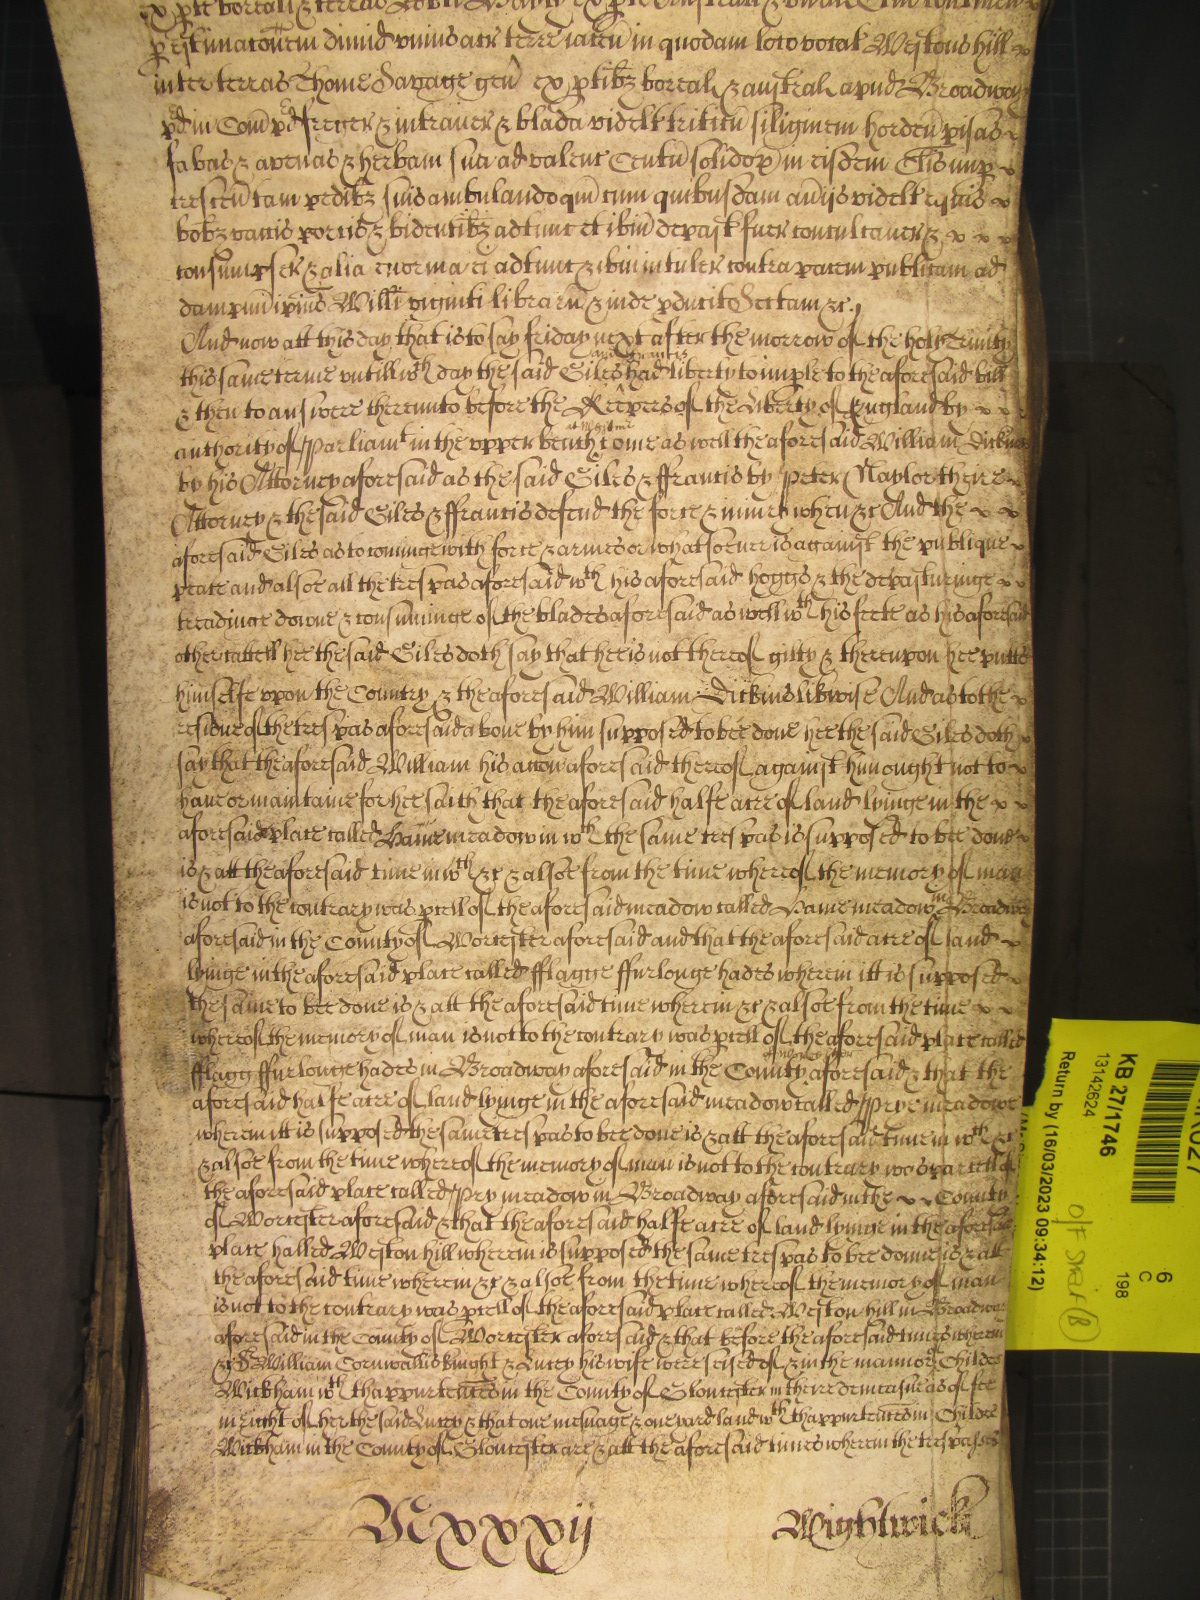 ex pte boreali & terras
p estimatoem dimid unius acr terre iaceñ in quodam loco vocat Westons hill
inter terras Thome Savage geñ ex ptibz boreal & austral apud Broadway
pd in Com pd freger & intraver & blada videlt triticu siliginem hordeu pisas
fabas & avenas & herbam sua ad valenc Centu solidor in eisdem
crescen tam pedibz suis ambulando qm cum quibusdam averijs videlt equis
bobz vaccis porcis & bidentibz adtunc et ibm depast fuer conculcaver &
consumpser & alia enormia ei adtunc & ibm intuler contra pacem publicam ad
dampnu ipius Willi viginti librarũ & inde pducit Sectam &c
And now att this day that is to say friday next after the morrow of the holy Trinity
this same terme untill wch day the said Giles and Francis had liberty to imple to the aforesaid bill
& then to answere thereunto before the Keepers of the Liberty of England by
authority of Parliamt in the upper bench att Westmr come as well the aforesaid William Dickins
by his Attorney aforesaid as the said Giles & ffrancis by Peter Naylor theire
Attorney & the said Giles & ffrancis defend the force & iniury when &c And the
aforesaid Giles as to cominge with force & armes or whatsoever is against the publique
peace and alsoe all the trespas aforesaid wth his aforesaid hoggs & the depasturinge
treadinge downe & consuminge of the blades aforesaid as well wth his feete as his aforesaid
other cattell hee the said Giles doth say that hee is not thereof gilty & thereupon hee putts
himselfe upon the Country & the aforesaid William Dickins likwise And as to the
residue of the trespas aforesaid above by him supposed to bee done hee the said Giles doth
say that the aforesaid William his accon aforesaid thereof against him ought not to
have or maintaine for hee saith that the aforesaid halfe acre of land lyinge in the
aforesaid place called Hame meadow in wch the same trespas is supposed to bee done
is & att the aforesaid time in wch &c & alsoe from the time whereof the memory of man
is not to the contrary was pcell of the aforesaid meadow called Hame meadow in Broadway
aforesaid in the County of Worcester aforesaid and that the aforesaid acre of land
lyinge in the aforesaid place called fflagge ffurlonge hades wherein itt is supposed
the same to bee done is & att the aforesaid time wherein &c & alsoe from the time
whereof the memory of man is not to the contrary was pcell of the aforesaid place called
fflagg ffurlonge hades in Broadway aforesaid in the County of Worcester aforesaid & that the
aforesaid halfe acre of land lyinge in the aforesaid meadow called Prye meadowe
wherein itt is supposed the same trespas to bee done is & att the aforesaid time in wch &c
& alsoe from the time whereof the memory of man is not to the contrary was parcell of
the aforesaid place called Pry meadow in Broadway aforesaid in the County
of Worcester aforesaid & that the aforesaid halfe acre of land lyinge in the aforesaid
place halled Weston hill wherein is supposed the same trespas to bee donne is & att
the aforesaid time wherein &c & alsoe from the time whereof the memory of man
is not to the contrary was pcell of the aforesaid place called Weston hill in Broadway
aforesaid in the County of Worcester aforesaid & that before the aforesaid times wherein
&c William Cornwallis knight & Lucey his wife were seised of & in the mannor of Childes
Wickham wth thappurtences in the County of Gloucester in theire demeasne as of fee
in right of her the said Lucey & that one mesuage & one yard land wth thappurtences in Childes
Wickham in the County of Gloucester are & att the aforesaid times wherein the trespasses
Mxxxij Wightwick
KB 27/1746
13142624
Return by (16/03/2023 09:34:12)
6
C
198
O/F Shelf (B)